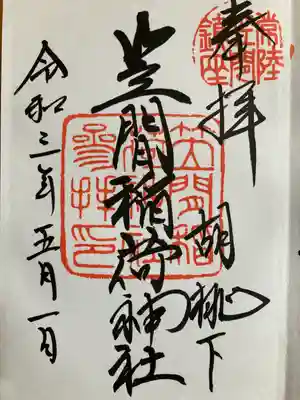 奉拝
胡桃下
笠間稲荷神社
令和三年五月一日
常陸
鎮座
笠間稲